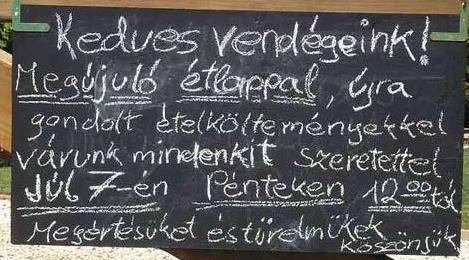 Kedves vendégeink!
Megújuló étlappal, újra
gondolt ételkölteményekkel
várunk mindenkit szeretettel
Júl 7-én Pénteken 12⁰⁰-tól
Megértésüket és türelmüket
köszönjük